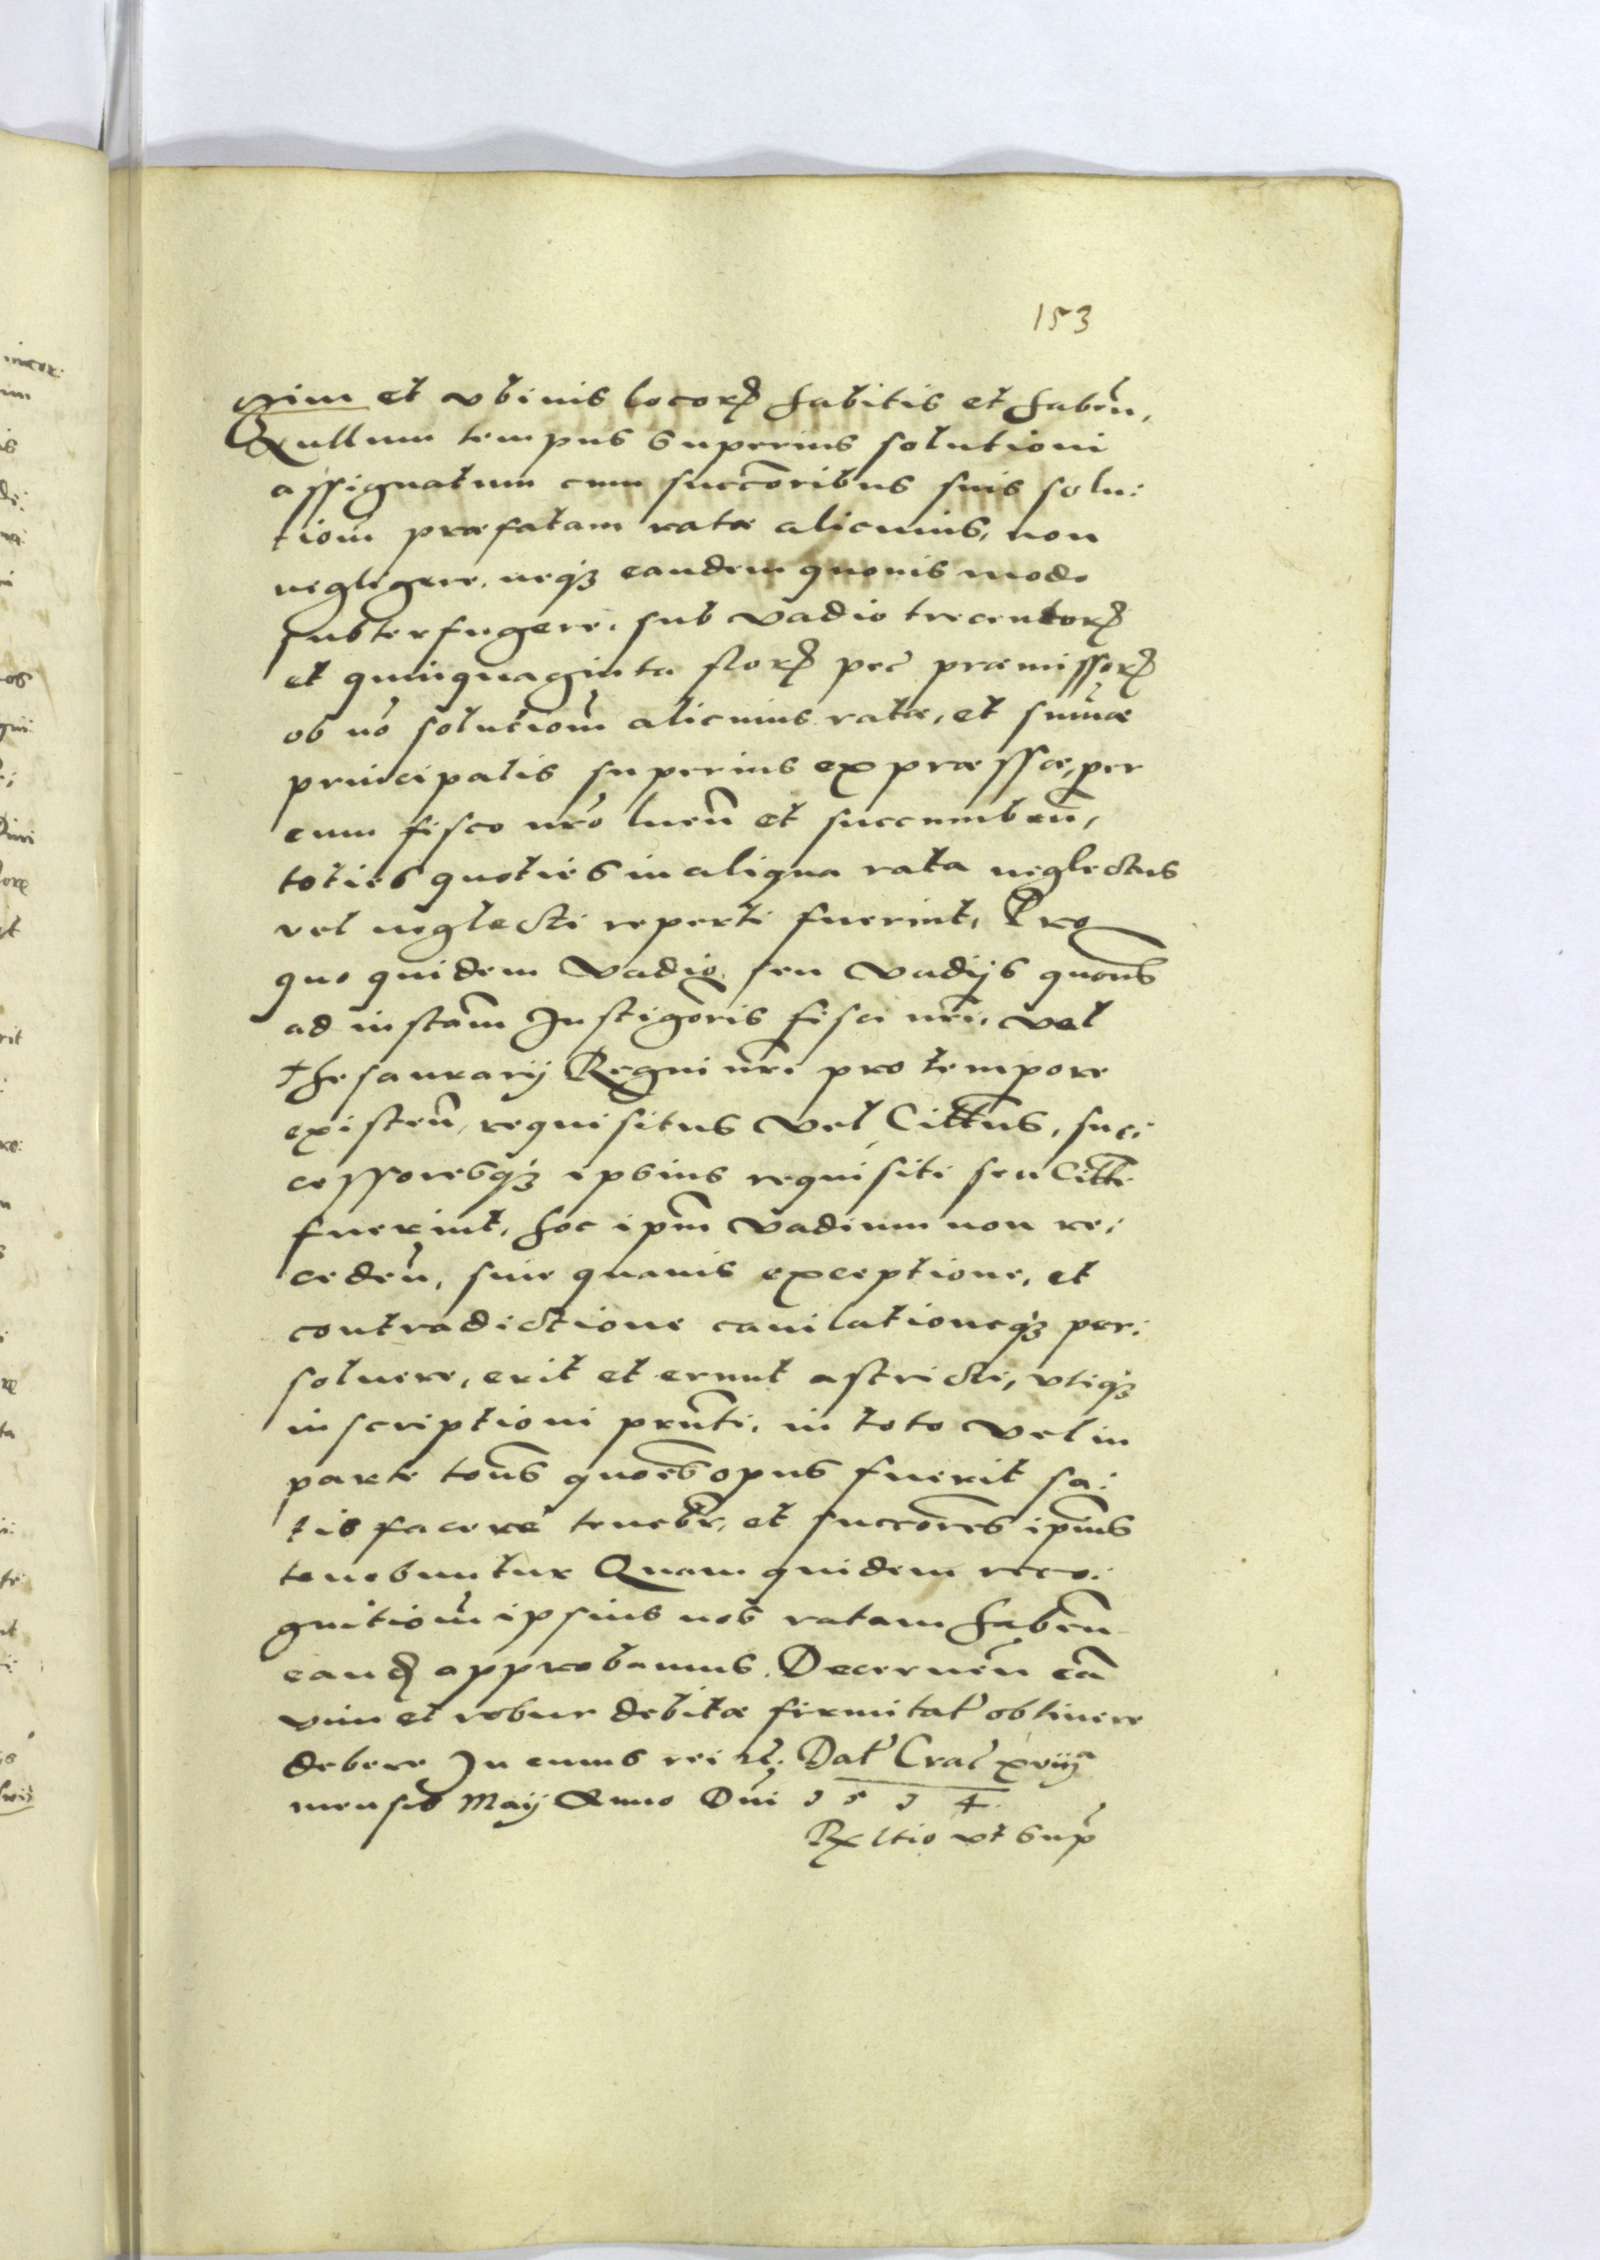 153
nim et vbiuis locoꝝ habitis et habeñ,
Nullum tempus superius solutioni
assignatum cum succōribus suis solu:
tiom̃ præfatam ratæ alicuius, non
negligere, neqꝫ eandem quouis modo
subterfugere, sub vadio trecentoꝝ
et quinquaginta floꝝ pec̃ præmissoꝝ
ob nõ solutiom̃ alicuius ratæ, et sum̃æ
principalis superius expræssæ, per
eum fisco nr̃o lueñ et succumbeñ,
toties quoties in aliqua rata neglectus
vel neglecti reperti fuerint, Pro
quo quidem vadio seu vadijs quoẽns
ad instam̃ Instigõris fisci nr̃i, vel
thesaurarij Regni nr̃i pro tempore
existeñ, requisitus vel Citt̃us, suc:
cessoresqꝫ ipsius requisiti seu Citt̃i
fuerint, hoc ipm̃ vadium non re:
cedeñ, sine quauis exceptione, et
contradictione cauilationeqꝫ per:
soluere, erit et erunt astricti, vtiqꝫ
inscriptioni prñti, in toto vel in
parte toẽns quoẽns opus fuerit sa:
tisfacere teneb̃r, et succõres ipĩus
tenebuntur Quam quidem reco:
gnitiom̃ ipsius nos ratam habeñ
eanđ approbamus. Decerneñ eã
vim et robur debitæ firmitat̃ obtinere
debere In cuius rei &c; Dat̃ Crac̃ xviij
mensis Maij Anno Dñi 1 5 7 4.
R̃xltio vt sup̃